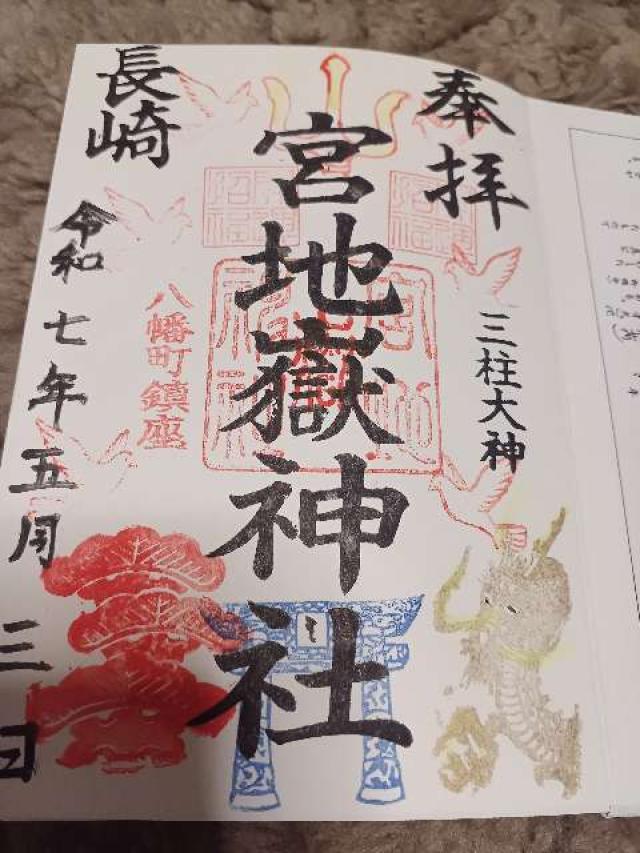 奉拝
三柱大神
宮地嶽神社
八幡町鎮座
長崎
令和七年五月三日